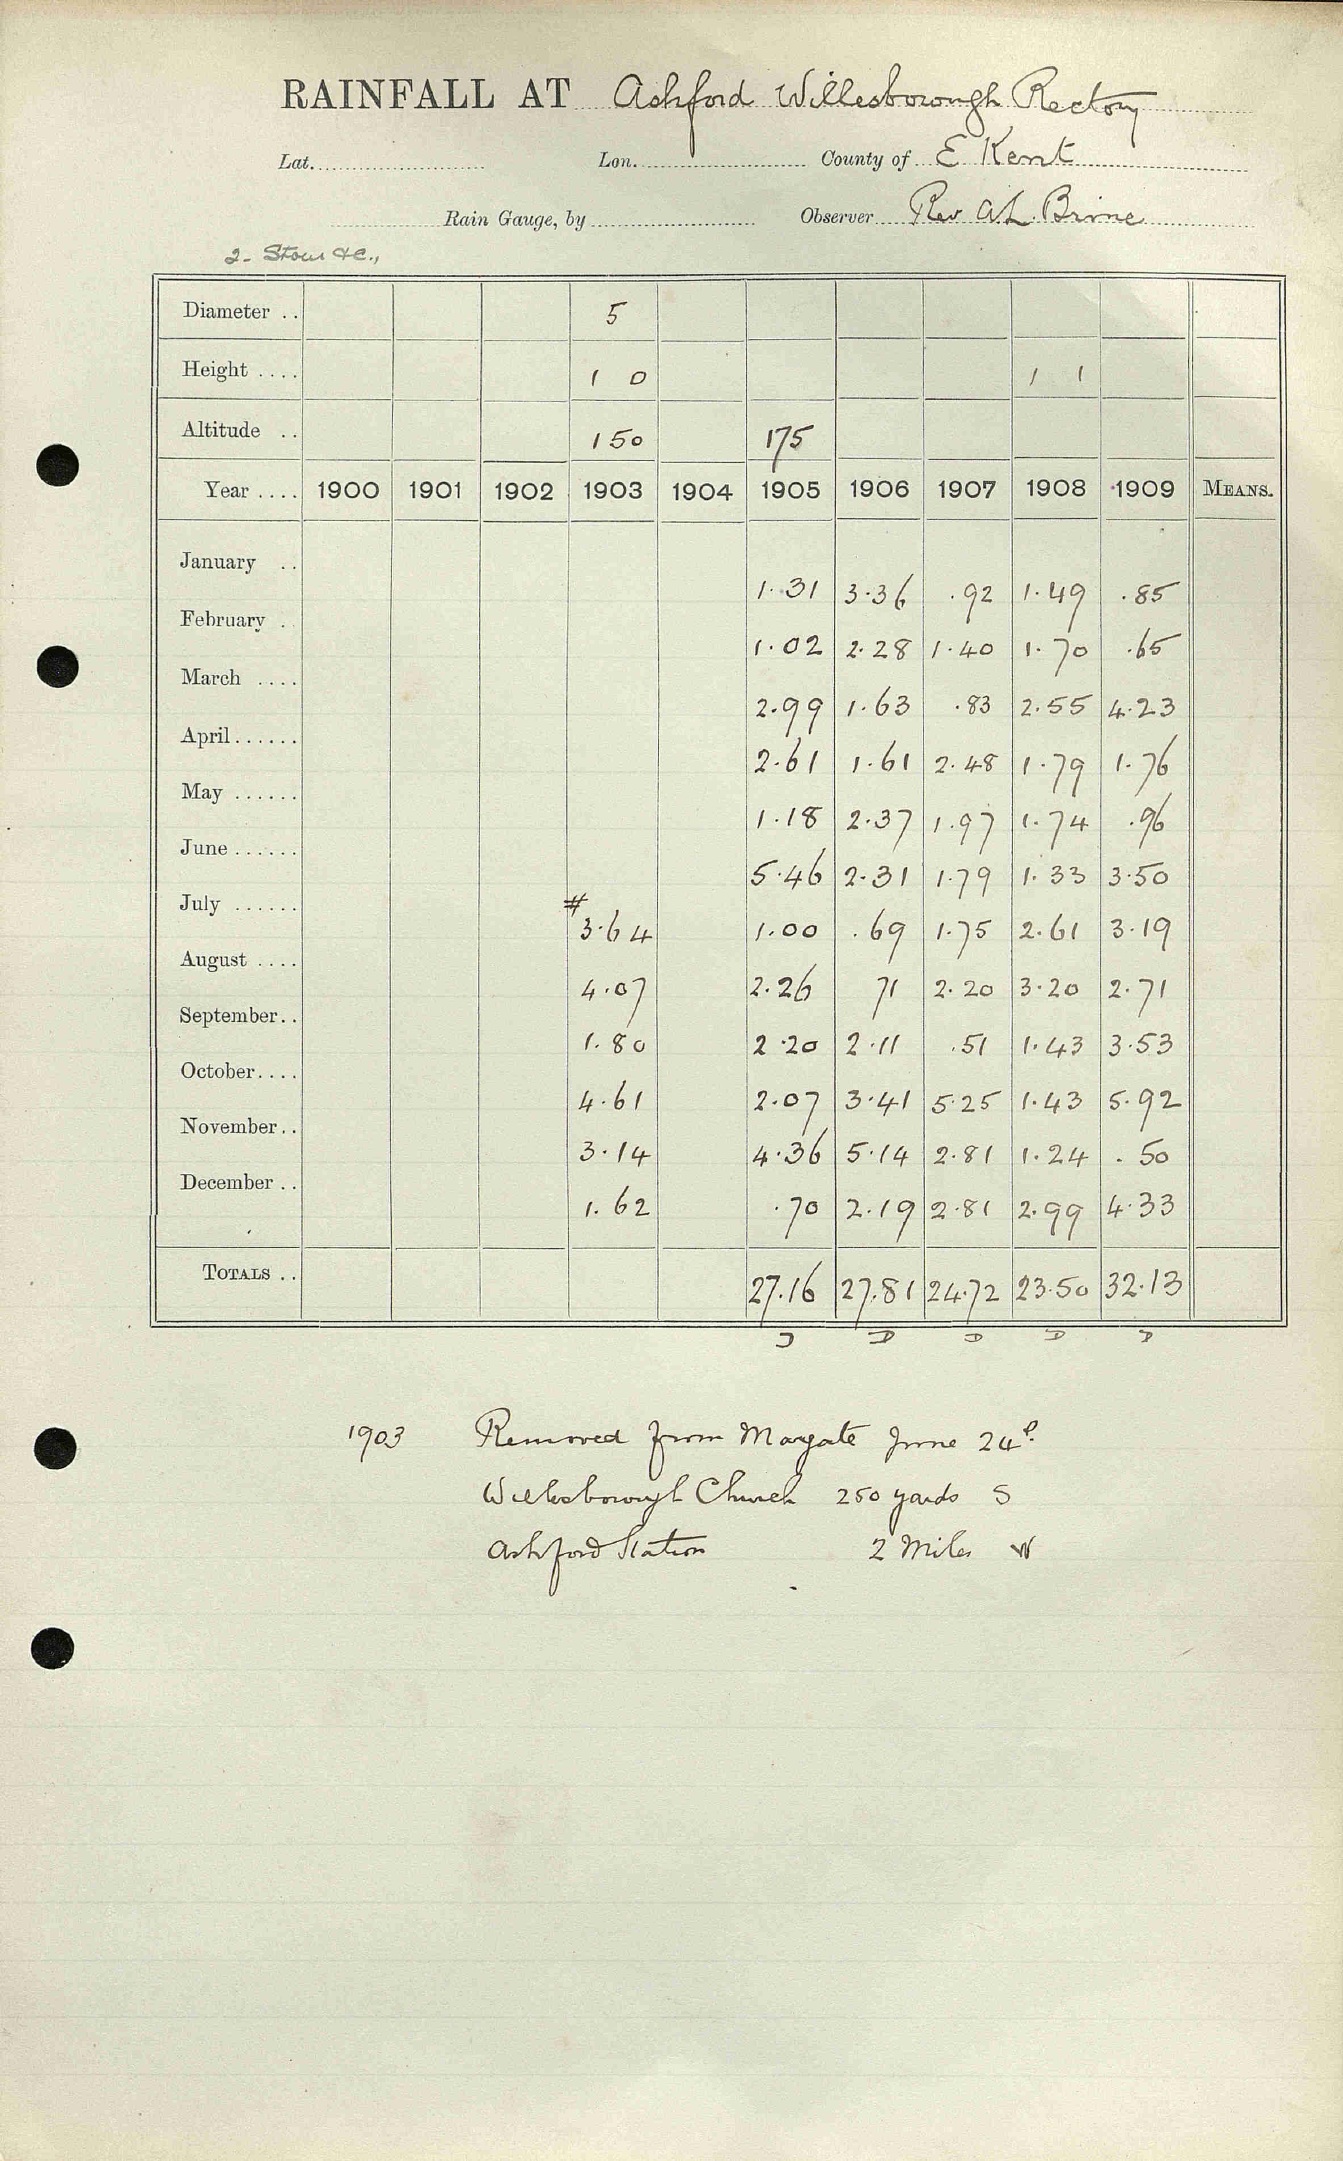 RAINFALL AT Ashford Willesborough Rectory
Lat. Lon. County of E Kent
Rain Gauge, by Observer Rev A.L. Brine
2. Stour &c.,
Diameter .. 5
Height .... 1 0 1 1
Altitude .. 150 175
Year .... 1900 1901 1902 1903 1904 1905 1906 1907 1908 1909 MEANS.
January .. 1.31 3.36 .92 1.49 .85
February . 1.02 2.28 1.40 1.70 .65
March .... 2.99 1.63 .83 2.55 4.23
April...... 2.61 1.61 2.48 1.79 1.76
May ...... 1.18 2.37 1.97 1.74 .96
June ...... 5.46 2.31 1.79 1.33 3.50
July ...... # 3.64 1.00 .69 1.75 2.61 3.19
August .... 4.07 2.26 71 2.20 3.20 2.71
September.. 1.80 2.20 2.11 .51 1.43 3.53
October.... 4.61 2.07 3.41 5.25 1.43 5.92
November.. 3.14 4.36 5.14 2.81 1.24 .50
December .. 1.62 .70 2.19 2.81 2.99 4.33
TOTALS .. 27.16 27.81 24.72 23.50 32.13
D D D D D
1903 Removed from Margate June 24th
Willesborough Church 250 yards S
Ashford Station 2 Miles W